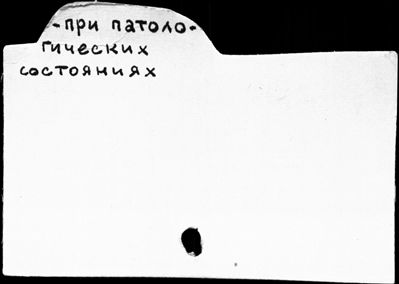 -при патоло-
гических
состояниях